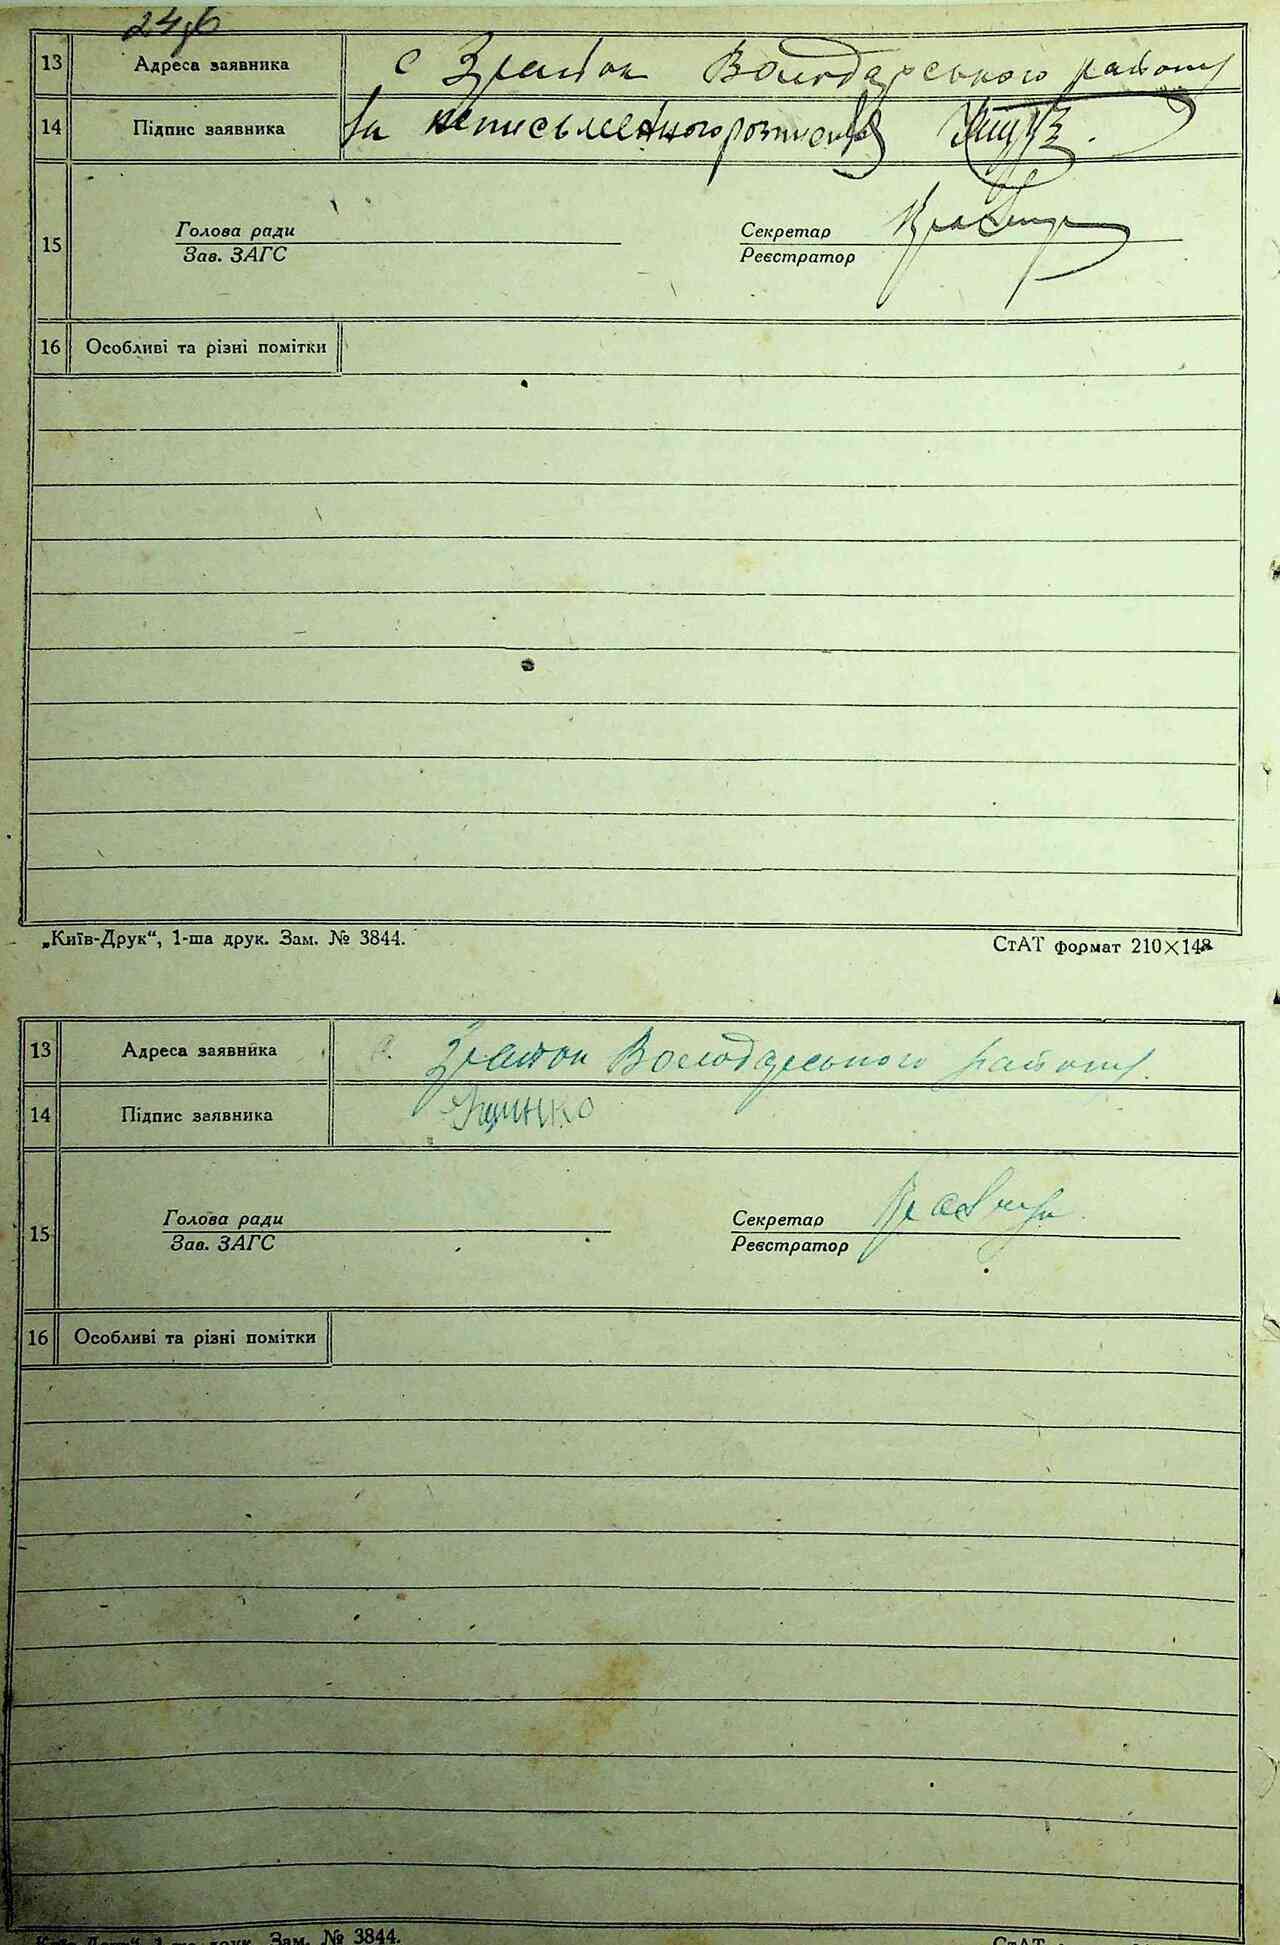 24
13 Адреса заявника с Зрайки Володарського району
14 Підпис заявника За неписьменного розписався
15 Голова ради Секретар
Зав. ЗАГС Реєстратор
16 Особливі та різні помітки
„Київ-Друк“, 1-ша друк. Зам. № 3844. СтАТ формат 210×148
13 Адреса заявника с. Зрайки Володарського району
14 Підпис заявника Ященко
15 Голова ради Секретар
Зав. ЗАГС Реєстратор
16 Особливі та різні помітки
друк. Зам. № 3844. СтАТ